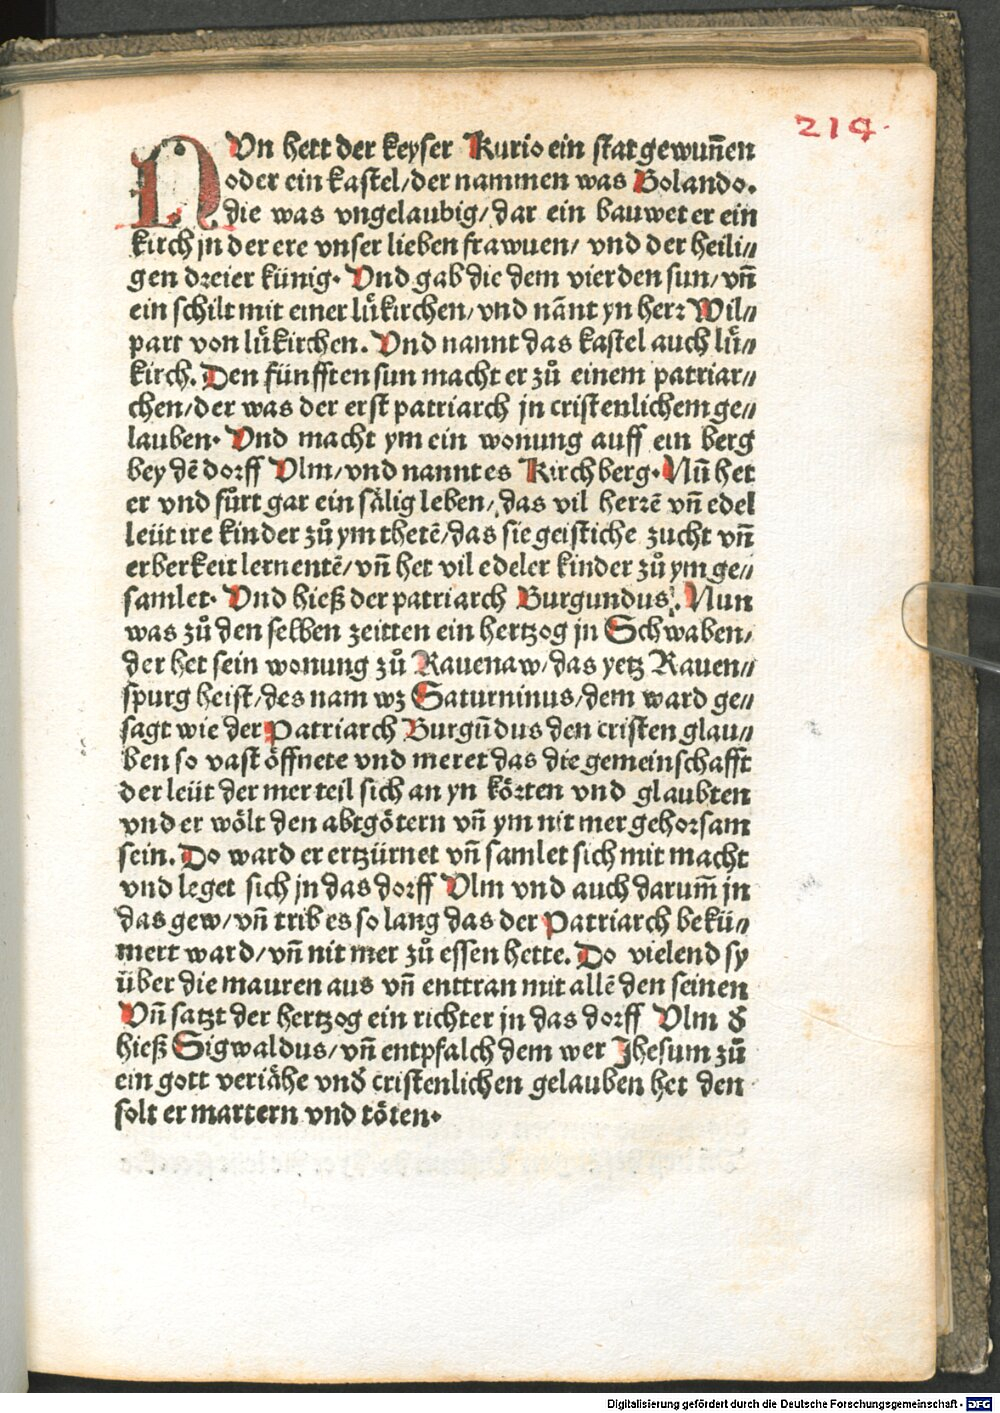 214.
NVn hett der keyser Kurio ein stat gewuñen
oder ein kastel/der nammen was Bolando.
die was vngelaubig/dar ein bauwet er ein
kirch jn der ere vnser lieben frawuen/ vnd der heili//
gen dreier künig. Vnd gab die dem vierden sun/ vñ
ein schilt mit einer lükirchen/vnd nãnt yn herr Wil//
part von lükirchen. Vnd nannt das kastel auch lü//
kirch. Den fünfften sun macht er zů einem patriar//
chen/der was der erst patriarch jn cristenlichem ge//
lauben. Vnd macht ym ein wonung auff ein berg
bey dẽ dorff Vlm/vnd nannt es Kirchberg. Nũ het
er vnd fůrt gar ein sälig leben/das vil herrẽ vñ edel
leüt ire kinder zů ym thetẽ/das sie geistiche zucht vñ
erberkeit lernentẽ/vñ het vil edeler kinder zů ym ge//
samlet. Vnd hieß der patriarch Burgundus. Nun
was zů den selben zeitten ein hertzog jn Schwaben/
der het sein wonung zů Rauenaw/das yetz Rauen//
spurg heist/des nam wz Saturninus/dem ward ge//
sagt wie der Patriarch Burgũdus den cristen glau//
ben so vast öffnete vnd meret das die gemeinschafft
der leüt der merteil sich an yn körten vnd glaubten
vnd er wölt den abtgötern vñ ym nit mer gehorsam
sein. Do ward er ertzürnet vñ samlet sich mit macht
vnd leget sich jn das dorff Vlm vnd auch darum̃ jn
das gew/vñ trib es so lang das der Patriarch bekü//
mert ward/vñ nit mer zů essen hette. Do vielend sy
über die mauren aus vñ enttran mit allẽ den seinen
Vñ satzt der hertzog ein richter jn das dorff Vlm ď
hieß Sigwaldus/vñ entpfalch dem wer Jhesum zů
ein gott veriähe vnď cristenlichen gelauben het den
solt er martern vnd töten.
Digitalisierung gefördert durch die Deutsche Forschungsgemeinschaft - DFG